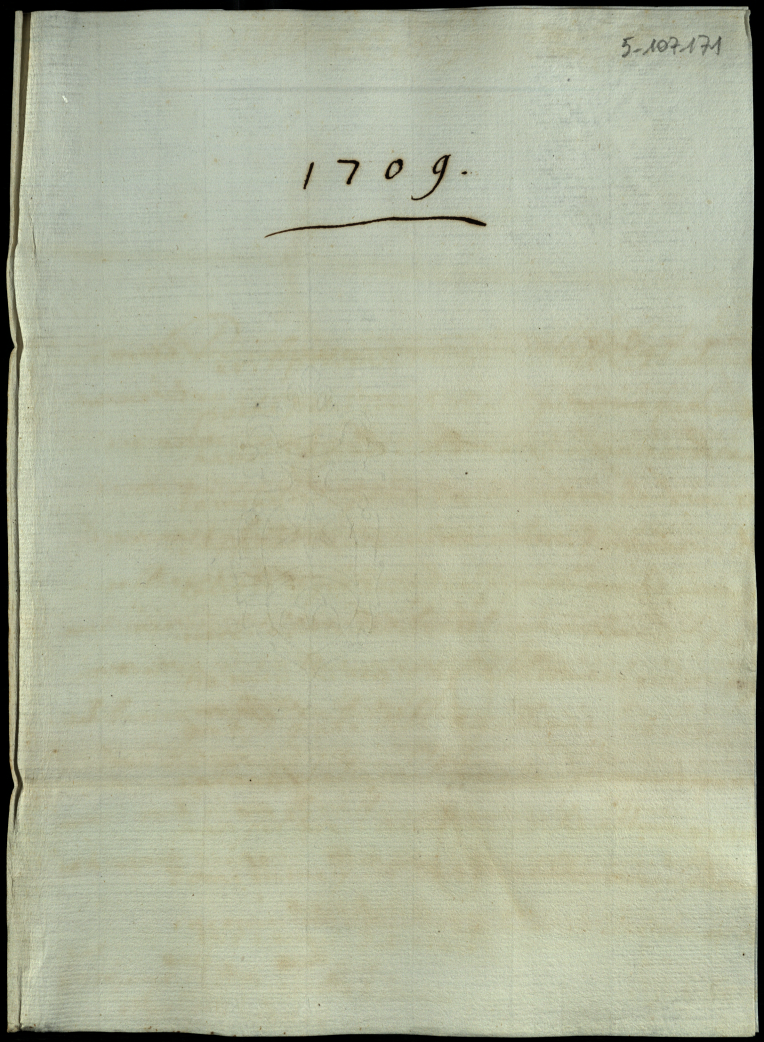 5-107-171
1709.